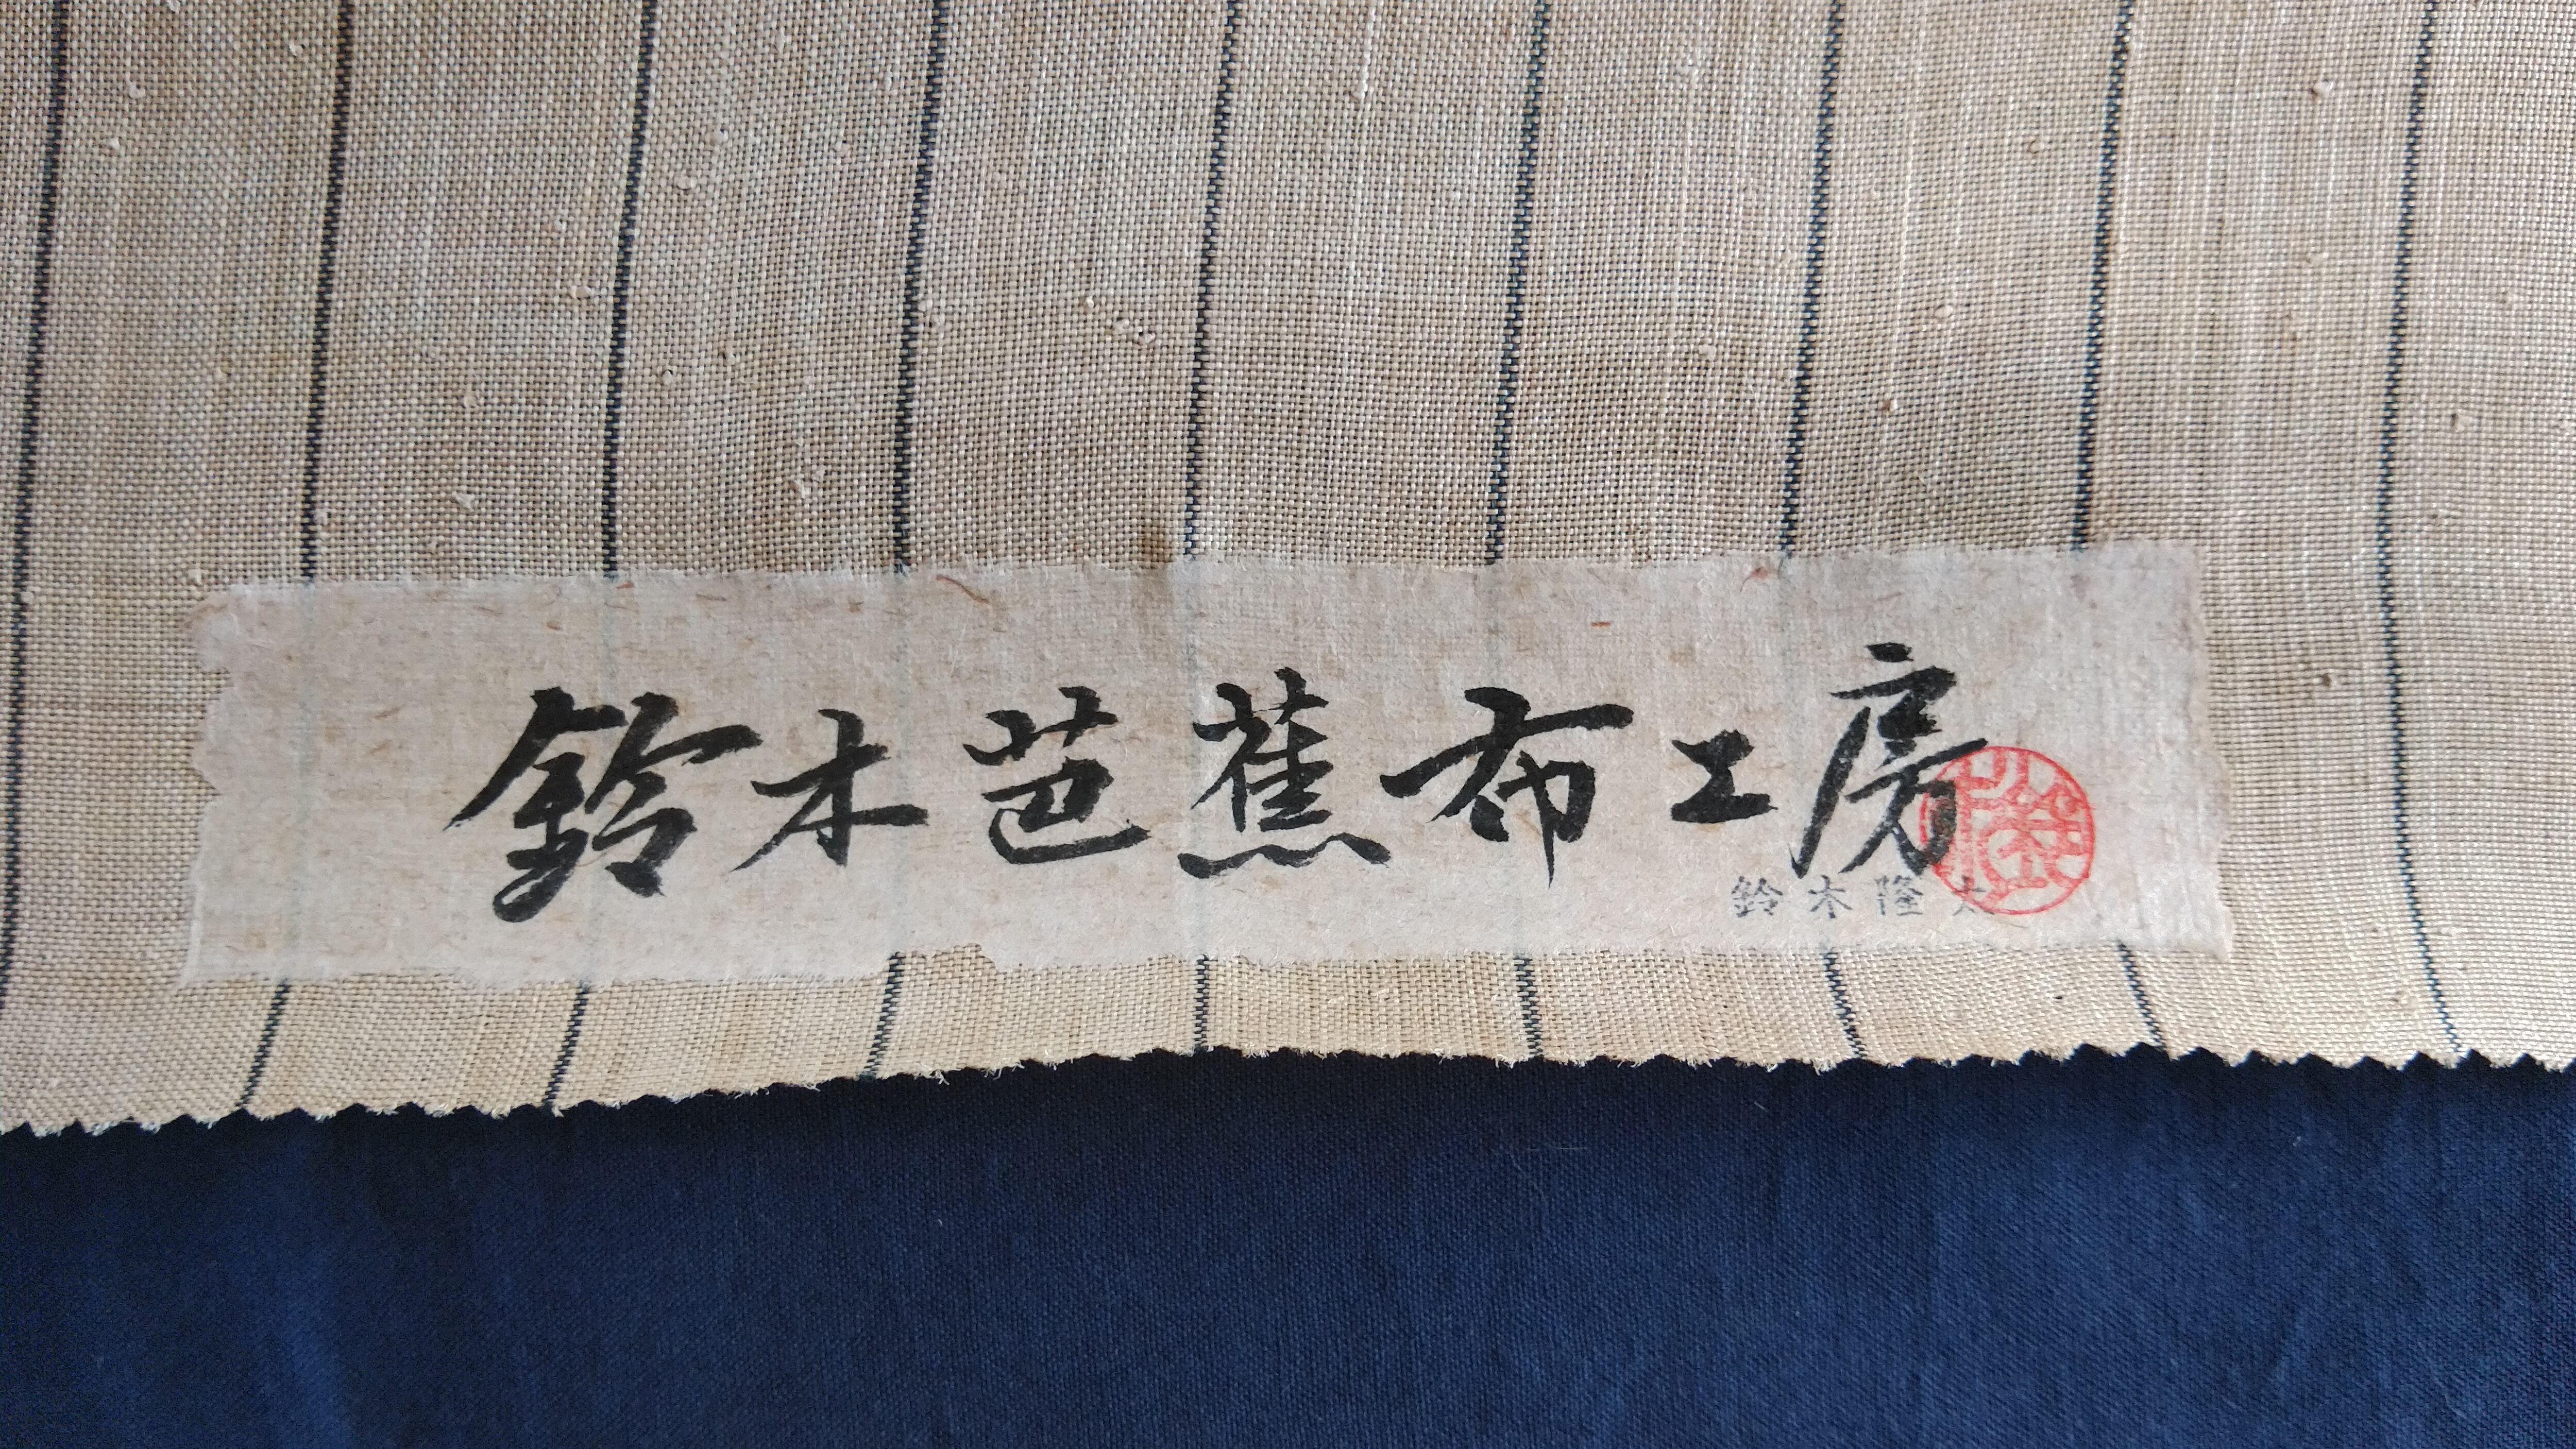 鈴木芭蕉布工房
鈴木隆太